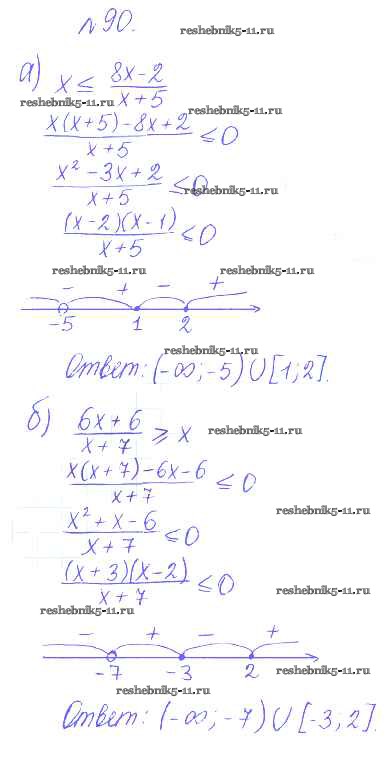 №90.
reshebnik5-11.ru
а) x ≤ (8x-2)/(x+5)
reshebnik5-11.ru
(x(x+5)-8x+2)/(x+5) ≤ 0
(x²-3x+2)/(x+5) ≤ 0
reshebnik5-11.ru
((x-2)(x-1))/(x+5) ≤ 0
reshebnik5-11.ru reshebnik5-11.ru
- + - +
-5 1 2
reshebnik5-11.ru
Ответ: (-∞; -5) ∪ [1; 2].
б) (6x+6)/(x+7) ≥ x
reshebnik5-11.ru
(x(x+7)-6x-6)/(x+7) ≤ 0
(x²+x-6)/(x+7) ≤ 0
reshebnik5-11.ru
((x+3)(x-2))/(x+7) ≤ 0
reshebnik5-11.ru
reshebnik5-11.ru
- + - +
-7 -3 2
reshebnik5-11.ru
reshebnik5-11.ru
Ответ: (-∞; -7) ∪ [-3; 2].